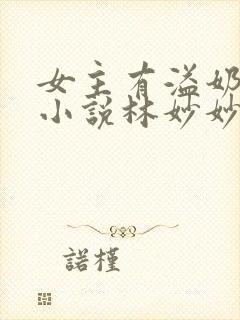 女主有溢奶
小說林妙妙
諾槿